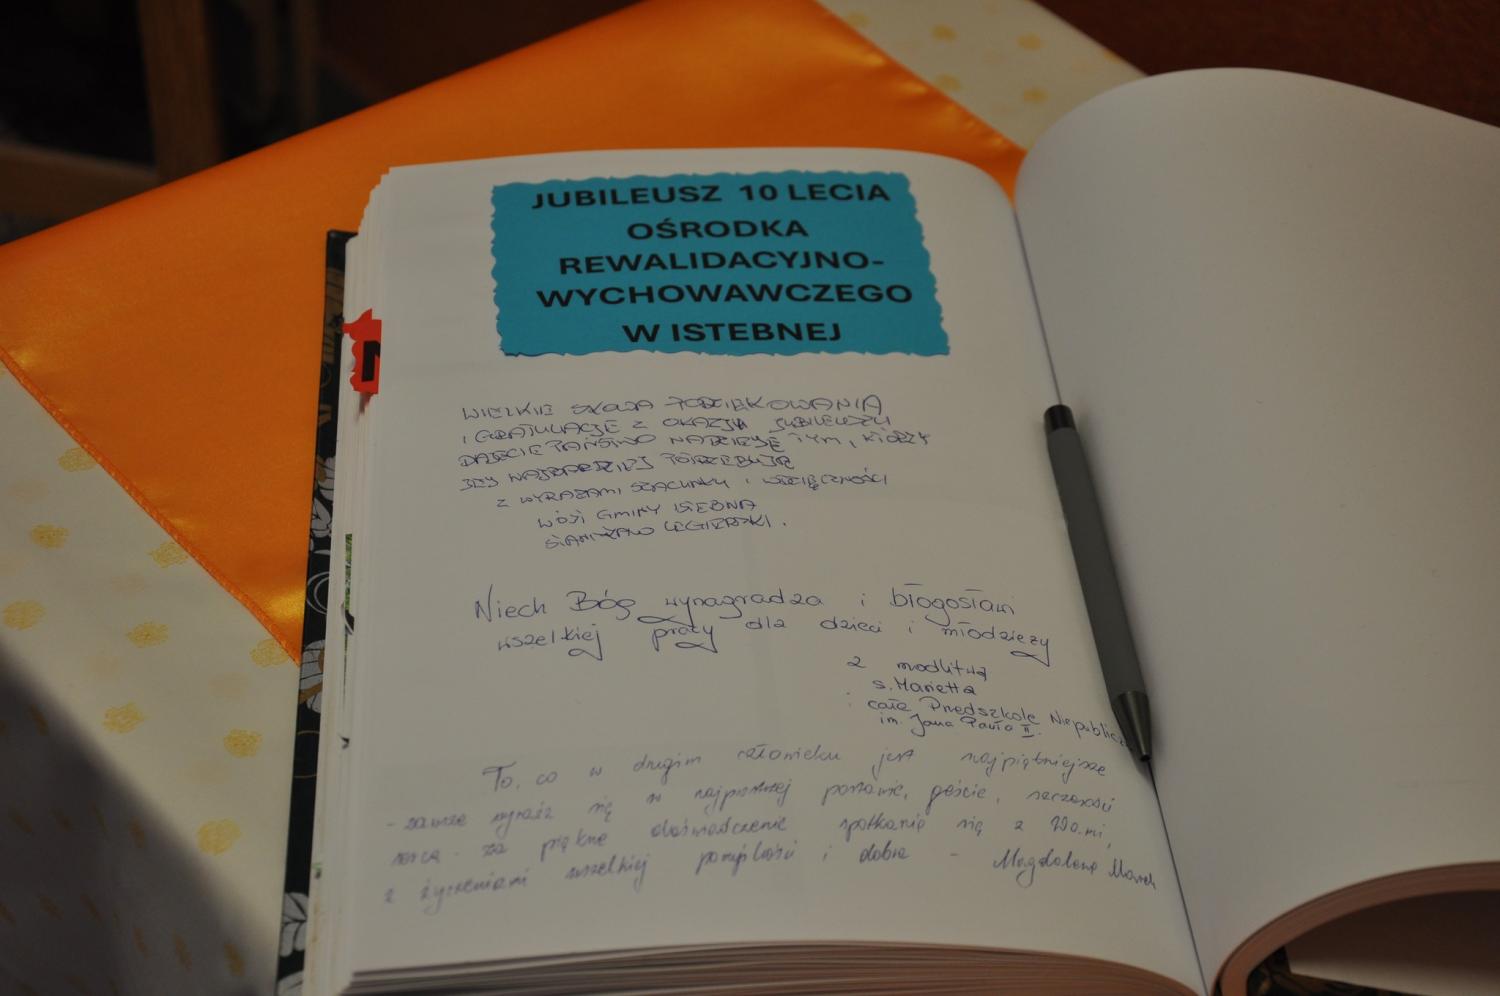 JUBILEUSZ 10 LECIA
OŚRODKA
REWALIDACYJNO-
WYCHOWAWCZEGO
W ISTEBNEJ
WIELKIE SŁOWA PODZIĘKOWANIA
I GRATULACJE Z OKAZJI JUBILEUSZU
DAJECIE PAŃSTWO NADZIEJĘ TYM, KTÓRZY
JEJ NAJBARDZIEJ POTRZEBUJĄ
Z WYRAZAMI SZACUNKU I WDZIĘCZNOŚCI
WÓJT GMINY ISTEBNA
LEGIERSKI.
Niech Bóg wynagradza i błogosławi
wszelkiej pracy dla dzieci i młodzieży
z modlitwą
s. Marietta
i całe Przedszkole Niepubliczne
im. Jana Pawła II.
To, co w drugim człowieku jest najpiękniejsze
- zawsze wyraża się w najprostszej postawie, geście, szczerości
serca - za piękne doświadczenie spotkania się z Wami,
z życzeniami wszelkiej pomyślności i dobra - Magdalena